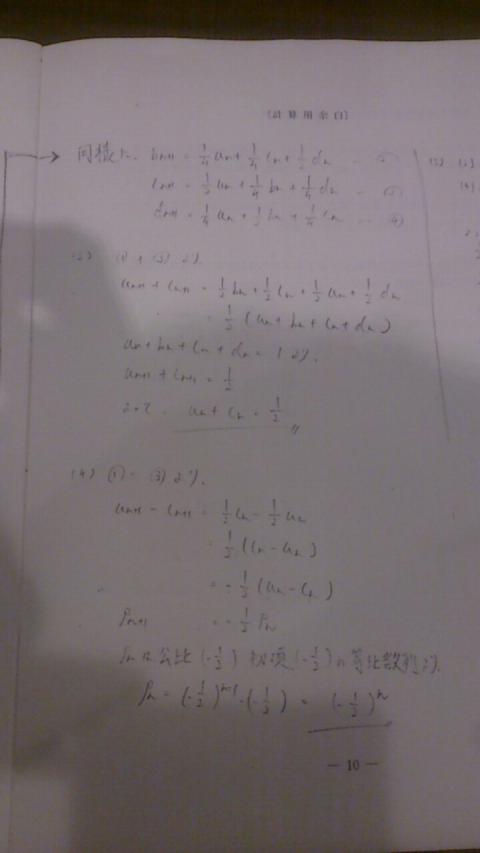 [計算用余白]
同様に、 bn+1 = 1/4 an + 1/4 cn + 1/2 dn … ②
cn+1 = 1/2 an + 1/4 bn + 1/4 dn … ③
dn+1 = 1/4 an + 1/2 bn + 1/4 cn … ④
an+1 + cn+1 = 1/2 bn + 1/2 cn + 1/2 an + 1/2 dn
= 1/2 (an + bn + cn + dn)
an + bn + cn + dn = 1 より、
an+1 + cn+1 = 1/2
an + cn = 1/2
(4) ① - ③ より、
an+1 - cn+1 = 1/2 cn - 1/2 an
= 1/2 (cn - an)
= -1/2 (an - cn)
Pn+1 = -1/2 Pn
Pnは公比(-1/2) 初項(-1/2)の等比数列より、
Pn = (-1/2)^n-1・(-1/2) = (-1/2)^n
— 10 —